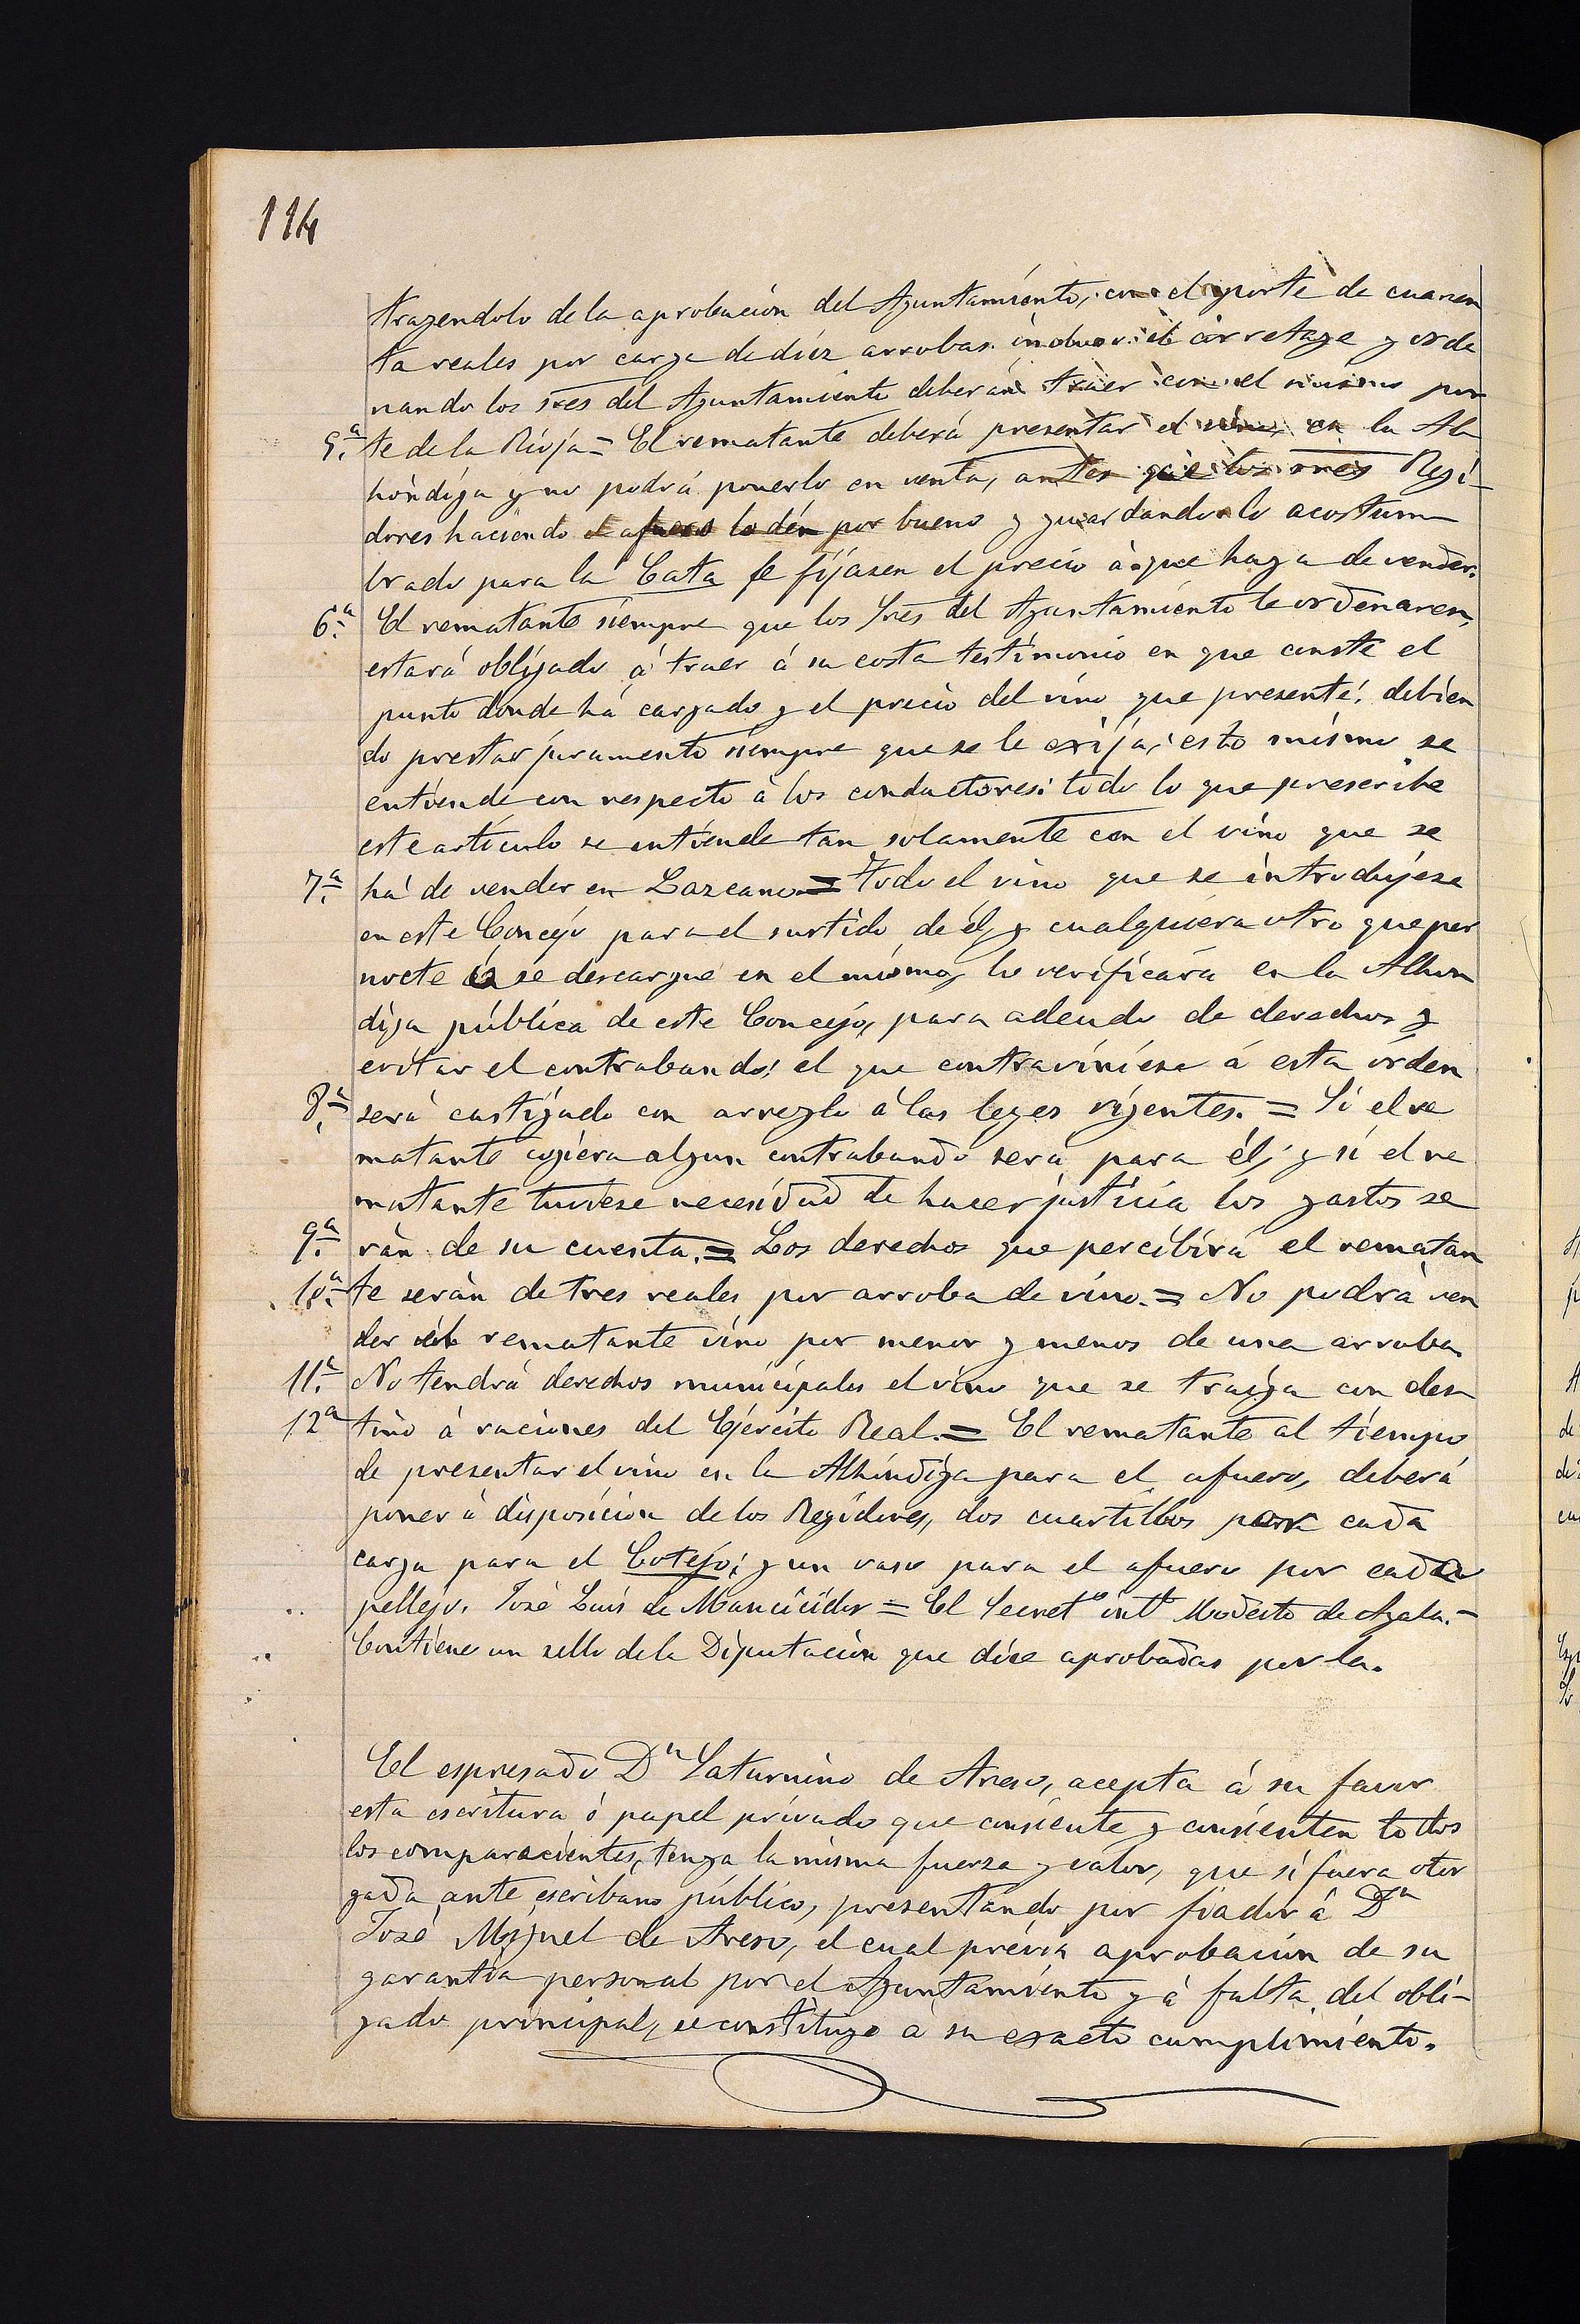 114
trayendolo de la aprobación del Ayuntamiento, con el porte de cuaren
ta reales por carga de diéz arrobas incluso el corretage y orde
nando los sres del Ayuntamiento deberán traer con el mismo por
5.ª te de la Rioja = El rematante deberá presentar el vino, en la Al
hóndiga y no podrá ponerlo en venta, antes que los sres Regi-
dores haciendo el afuero lo dén por bueno y guardando lo acostum
brado para la Cata le fijasen el precio à que haya de vender.
6.ª El rematante siempre que los Sres del Ayuntamiento le ordenaren,
estará obligado á traer á su costa testimonio en que conste el
punto donde há cargado y el precio del vino que presenté: debien
do prestar juramento siempre que se le exija; esto mismo se
entiende con respecto à los conductores: todo lo que prescribe
este artículo se entiende tan solamente con el vino que se
7.ª há de vender en Lazcano = Todo el vino que se introdujese
en este Concejo para el surtido de él, y cualquiera otro que per
nocte ó se descargue en el mismo, lo verificara en la Alhon
diga pública de este Concejo, para adeudo de derechos y
evitar el contrabando; el que contraviniese á esta órden
8.ª será castigado con arreglo á las leyes vigentes. = Si el re
matante cogiera algun contrabando será para él; y si el re
matante tuviese necesidad de hacer justicia los gastos se
9.ª rán de su cuenta. = Los derechos que percibirá el rematan
10.ª te serán de tres reales por arroba de vino. = No podrà ven
der el rematante vino por menor y menos de una arroba
11.ª No tendrá derechos municipales el vino que se traiga con des
12ª tino á raciones del Ejército Real. = El rematante al tiempo
de presentar el vino en la Alhóndiga para el afuero, deberá
poner á disposicion de los Regidores, dos cuartillos para cada
carga para el Cotejo; y un vaso para el afuero por cada
pellejo. José Luis de Mancicidor = El Secretº intº Modesto de Ayala. =
Contiene un sello de la Diputación que dice aprobadas por la.
El espresado Dn Saturnino de Areso, acepta á su favor
esta escritura ó papel privado que consiente y consienten todos
los comparecientes, tenga la misma fuerza y valor, que si fuera otor
gada ante escribano público, presentándo por fiador á Dn
José Miguel de Areso, el cual prévia aprobación de su
garantía personal por el Ayuntamiento y à falta del obli-
gado principal, se constituye à su exacto cumplimiento.